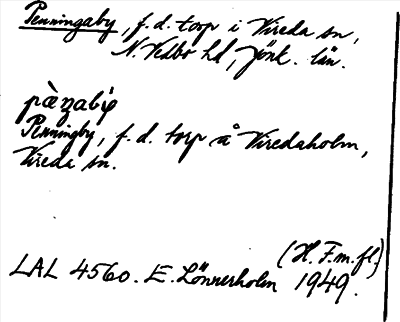 Penningaby, f.d. torp i Vireda sn,
N. Vedbo hd, Jönk. län.
pæ̀ŋabý
Penningby, f.d. torp å Viredaholm,
Vireda sn.
(H. F.m.fl.)
LAL 4560. E. Lönnerholm 1949.